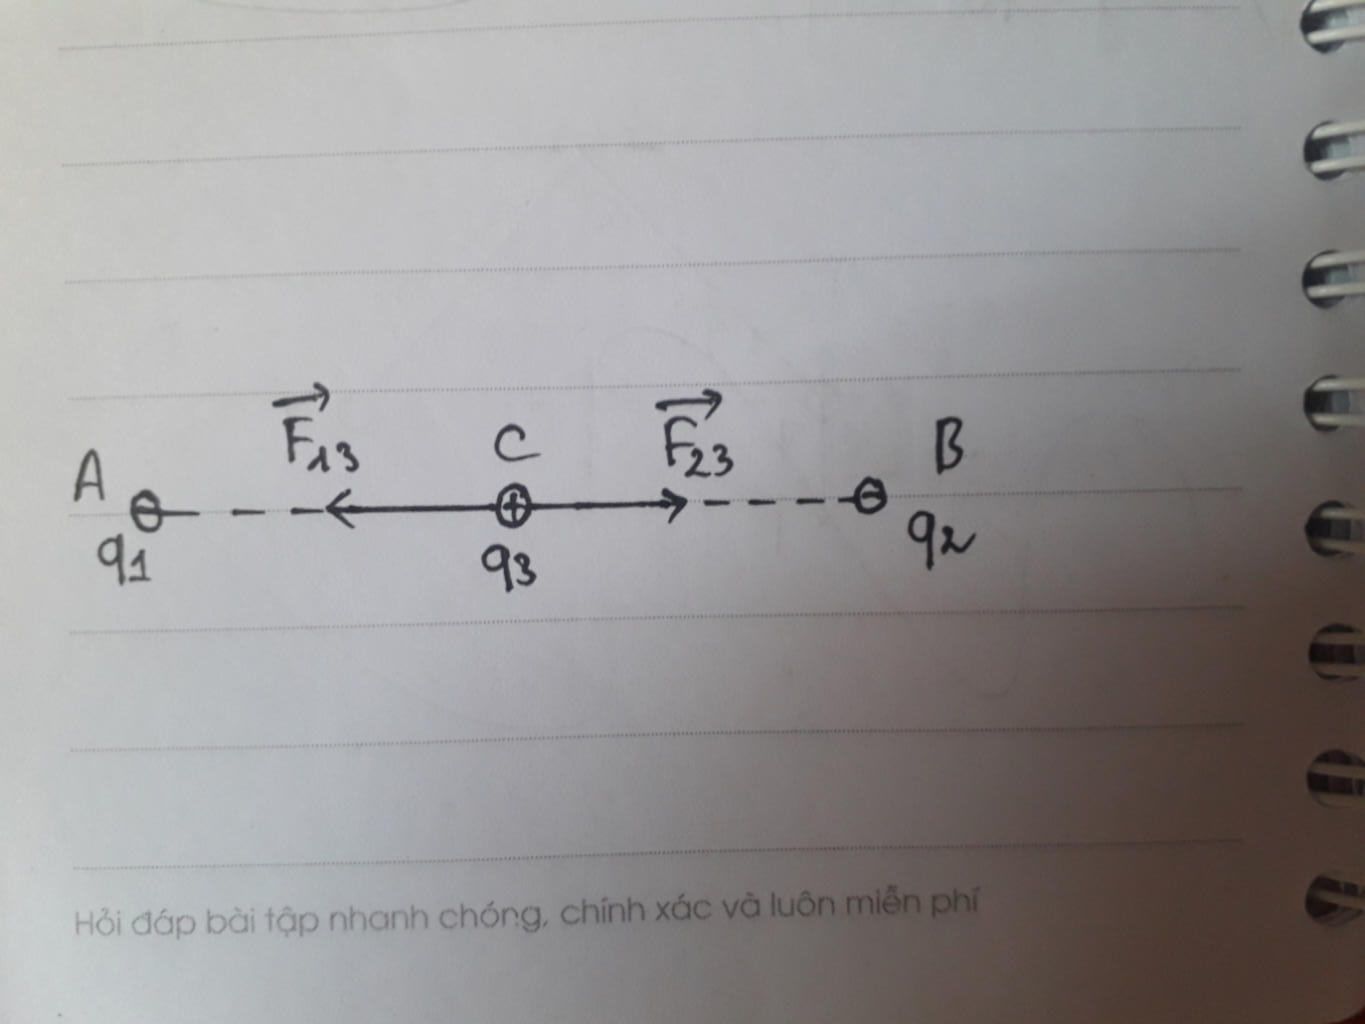 F13 C F23 B
A
q1 q3 q2
Hỏi đáp bài tập nhanh chóng, chính xác và luôn miễn phí